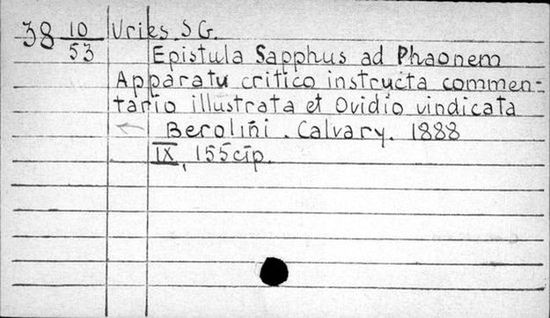 38 10/53 Vries S G.
Epistula Sapphus ad Phaonem
Apparatu critico instructa commen-
tario illustrata et Ovidio vindicata
Berolini. Calvary. 1888
IX, 155 cīp.